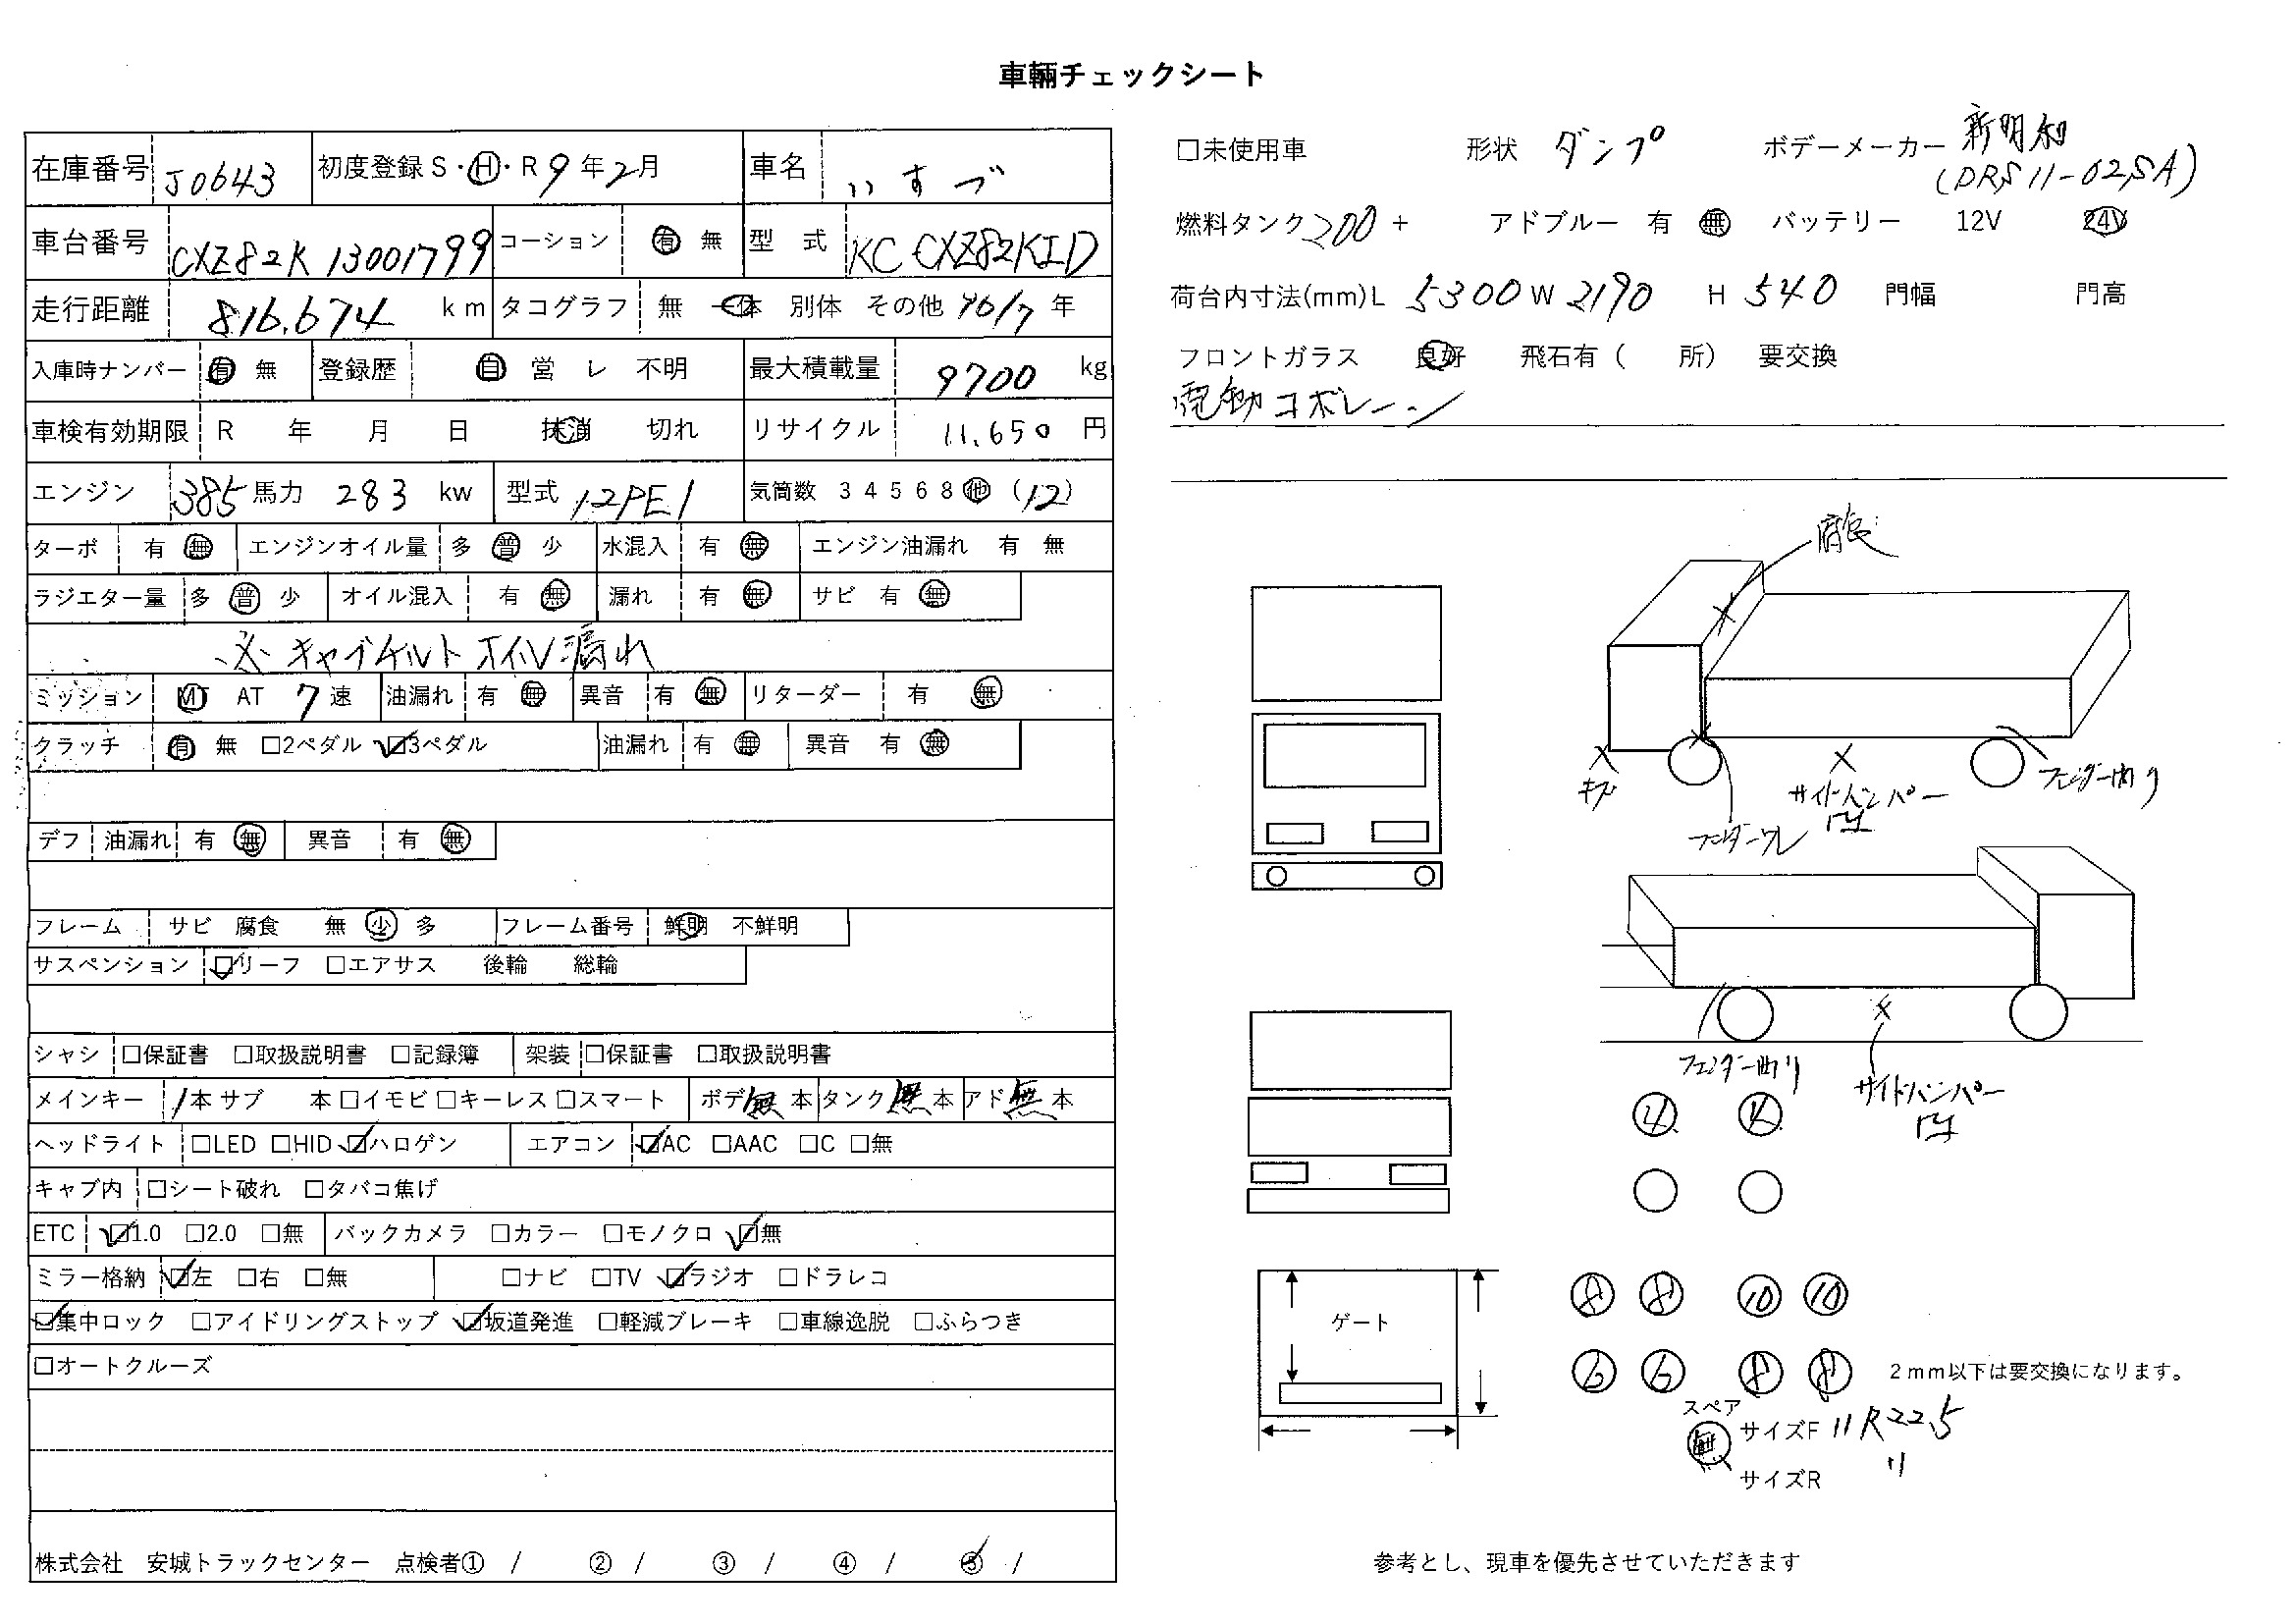 車輛チェックシート
在庫番号 J0643 初度登録 S・H・R 9年2月 車名 いすゞ
車台番号 CXZ82K 13001799 コーション 有 無 型 式 KC CXZ82KID
走行距離 816.674 km タコグラフ 無 一体 別体 その他 96/7 年
入庫時ナンバー 有 無 登録歴 自 営 レ 不明 最大積載量 9700 kg
車検有効期限 R 年 月 日 抹消 切れ リサイクル 11.650 円
エンジン 385 馬力 283 kw 型式 12PE1 気筒数 3 4 5 6 8 他 (12)
ターボ 有 無 エンジンオイル量 多 普 少 水混入 有 無 エンジン油漏れ 有 無
ラジエター量 多 普 少 オイル混入 有 無 漏れ 有 無 サビ 有 無
※ キャブチルト オイル漏れ
ミッション MT AT 7速 油漏れ 有 無 異音 有 無 リターダー 有 無
クラッチ 有 無 □2ペダル ☑3ペダル 油漏れ 有 無 異音 有 無
デフ 油漏れ 有 無 異音 有 無
フレーム サビ 腐食 無 少 多 フレーム番号 鮮明 不鮮明
サスペンション ☑リーフ □エアサス 後輪 総輪
シャシ □保証書 □取扱説明書 □記録簿 架装 □保証書 □取扱説明書
メインキー 1本 サブ 本 □イモビ □キーレス □スマート ボデ 無 本 タンク 無 本 アド 無 本
ヘッドライト □LED □HID ☑ハロゲン エアコン ☑AC □AAC □C □無
キャブ内 □シート破れ □タバコ焦げ
ETC ☑1.0 □2.0 □無 バックカメラ □カラー □モノクロ ☑無
ミラー格納 ☑左 □右 □無 □ナビ □TV ☑ラジオ □ドラレコ
☑集中ロック □アイドリングストップ ☑坂道発進 □軽減ブレーキ □車線逸脱 □ふらつき
□オートクルーズ
株式会社 安城トラックセンター 点検者① / ② / ③ / ④ / ⑤ /
□未使用車 形状 ダンプ ボデーメーカー 新明和
(DRS11-02SA)
燃料タンク 200 + アドブルー 有 無 バッテリー 12V 24V
荷台内寸法(mm)L 5300 W 2190 H 540 門幅 門高
フロントガラス 良好 飛石有 ( 所) 要交換
電動コボレーン
腐食
キズ
フェンダーワレ
サイドバンパー
凹
フェンダー曲り
フェンダー曲り
サイドバンパー
凹
4 4
8 8 10 10
6 6 8 8 2mm以下は要交換になります。
ゲート
スペア
無 サイズF 11R22.5
サイズR 〃
参考とし、現車を優先させていただきます